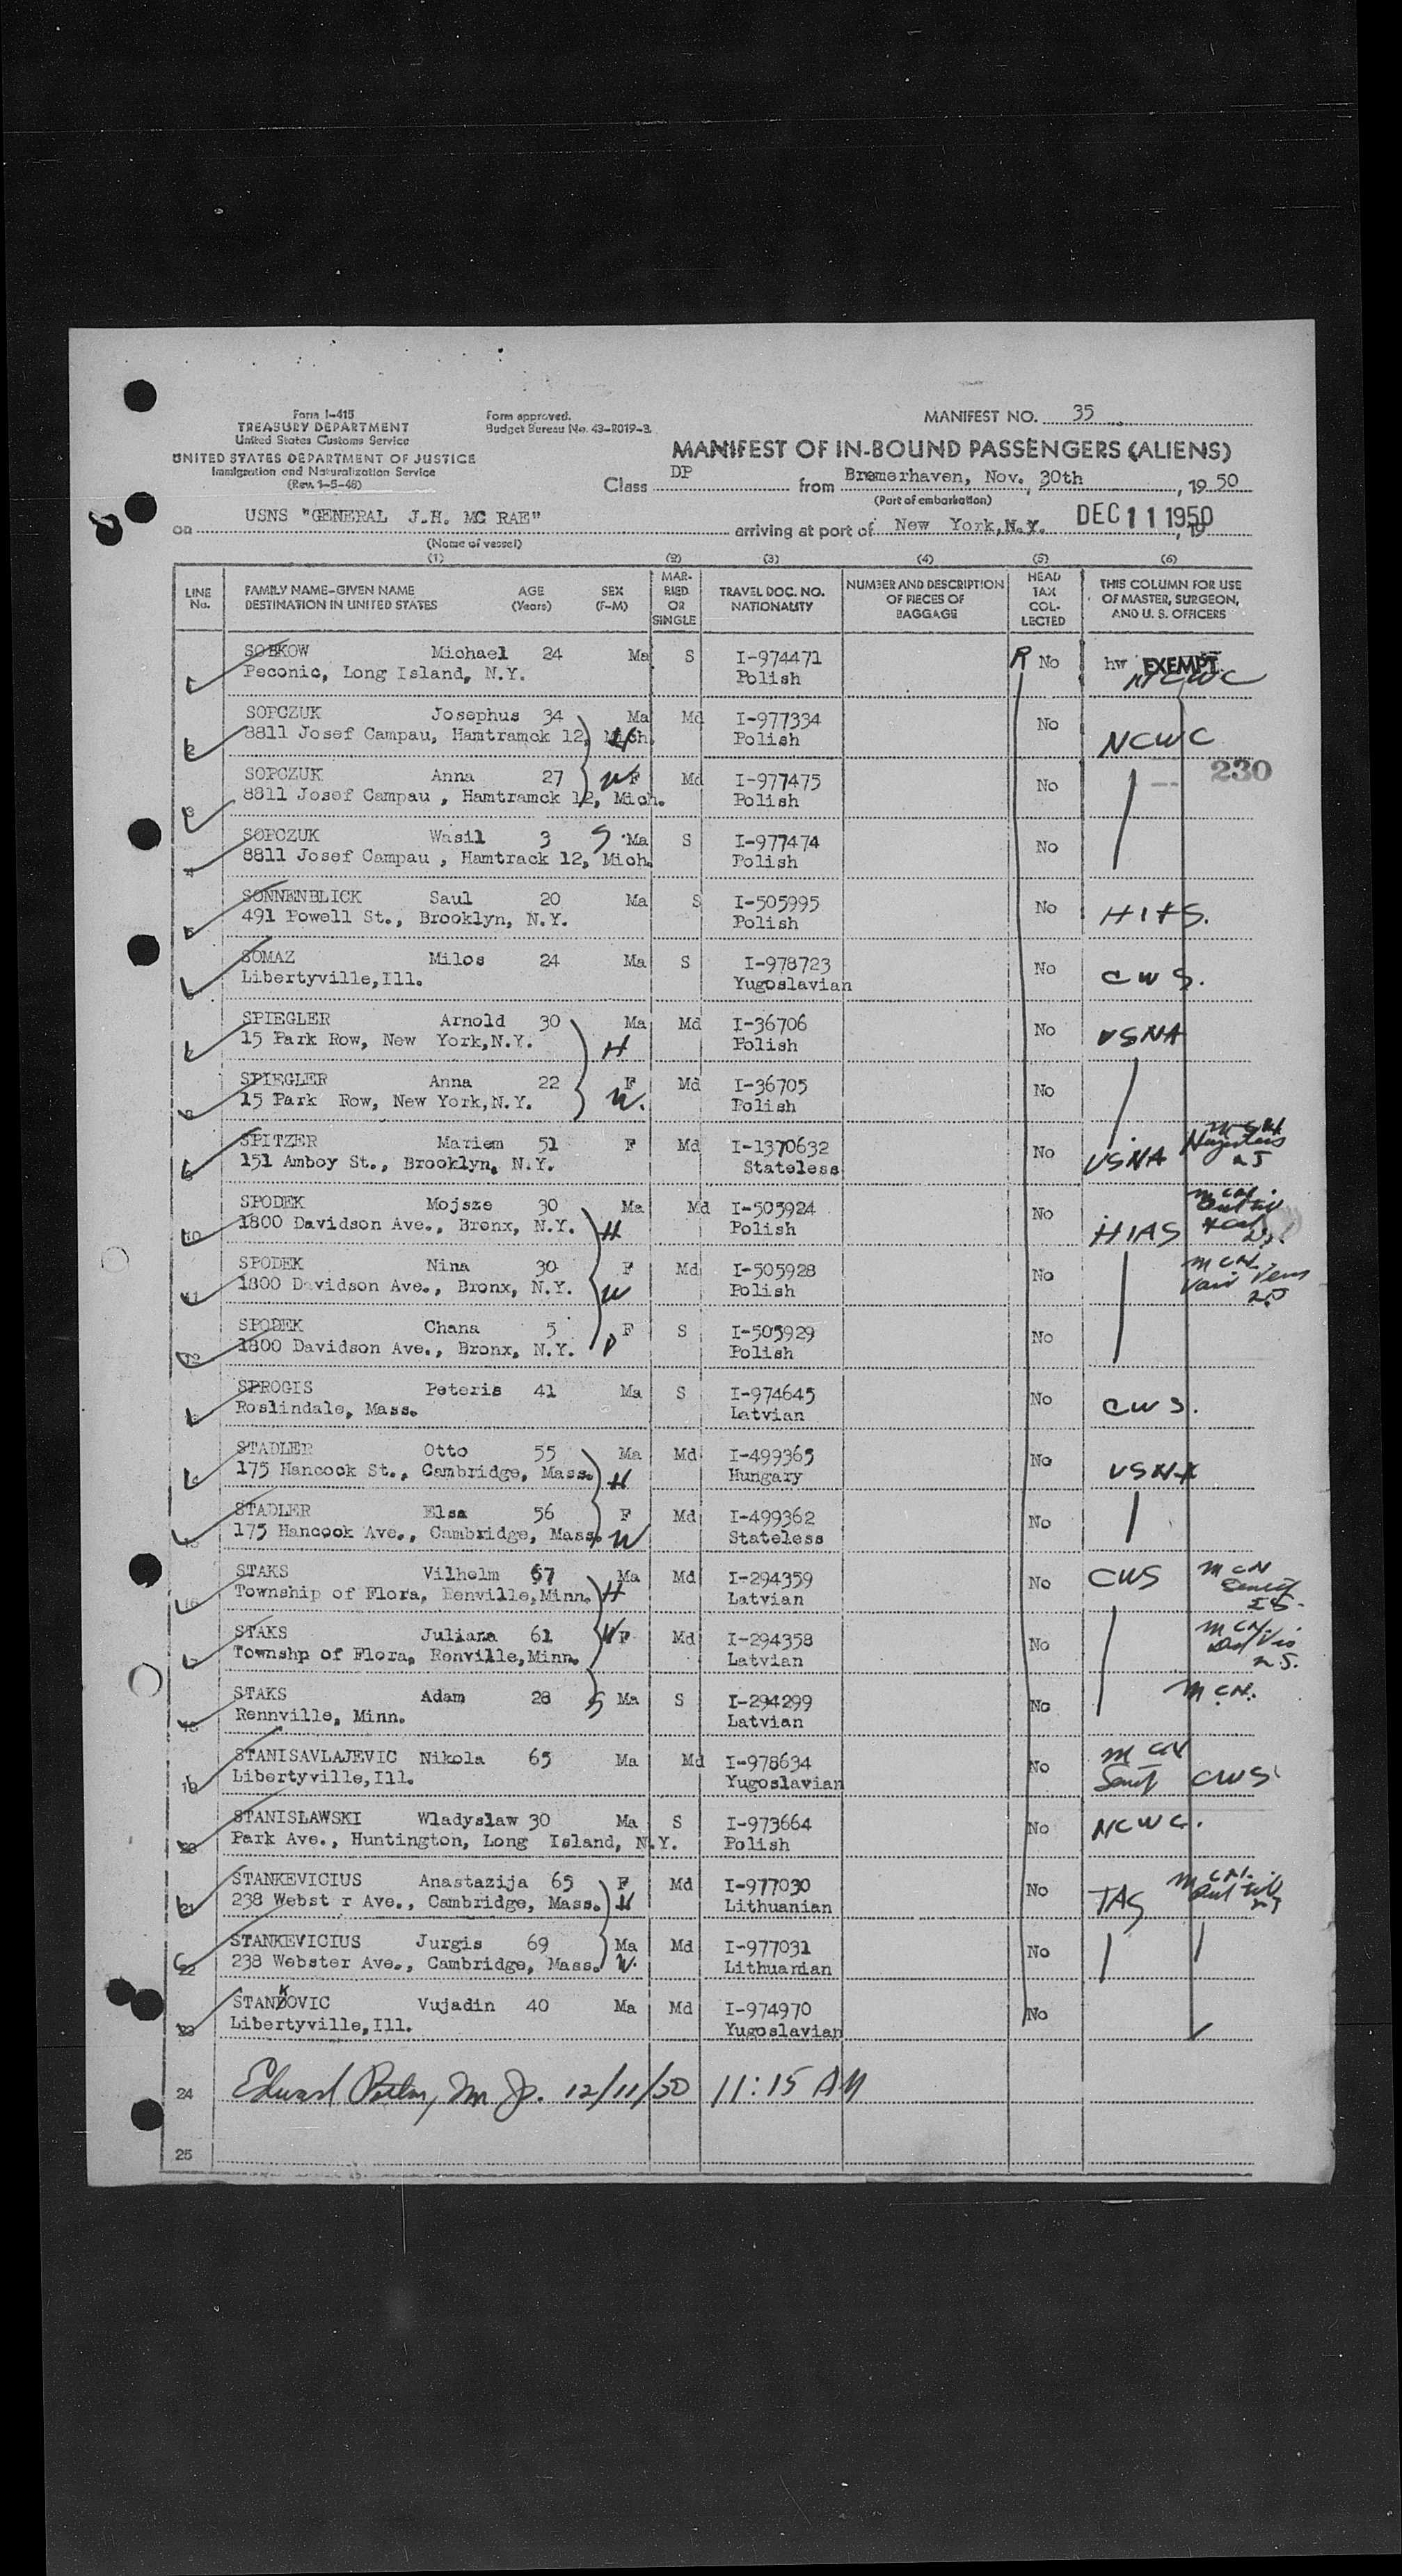 Form I-415
TREASURY DEPARTMENT
United States Customs Service
UNITED STATES DEPARTMENT OF JUSTICE
Immigration and Naturalization Service
(Rev. 1-5-48)
Form approved.
Budget Bureau No. 43-R019-3.
MANIFEST NO. 35
MANIFEST OF IN-BOUND PASSENGERS (ALIENS)
Class DP from Bremerhaven, Nov. 30th, 1950
(Port of embarkation)
on USNS "GENERAL J.H. MC RAE" arriving at port of New York, N.Y. DEC 11 1950, 19
(Name of vessel)
(1) (2) (3) (4) (5) (6)
LINE No. FAMILY NAME-GIVEN NAME DESTINATION IN UNITED STATES AGE (Years) SEX (F-M) MARRIED OR SINGLE TRAVEL DOC. NO. NATIONALITY NUMBER AND DESCRIPTION OF PIECES OF BAGGAGE HEAD TAX COLLECTED THIS COLUMN FOR USE OF MASTER, SURGEON, AND U. S. OFFICERS
1 SOBKOW Michael 24 Ma S I-974471 R No hw EXEMPT
Peconic, Long Island, N.Y. Polish NCWC
2 SOPCZUK Josephus 34 Ma Md I-977334 No
8811 Josef Campau, Hamtramck 12, Mich. H Polish NCWC
230
3 SOPCZUK Anna 27 W F Md I-977475 No
8811 Josef Campau , Hamtramck 12, Mich. Polish
4 SOPCZUK Wasil 3 S Ma S I-977474 No
8811 Josef Campau , Hamtrack 12, Mich. Polish
5 SONNENBLICK Saul 20 Ma S I-505995 No HIAS.
491 Powell St., Brooklyn, N.Y. Polish
6 SOMAZ Milos 24 Ma S I-978723 No CWS.
Libertyville,Ill. Yugoslavian
7 SPIEGLER Arnold 30 Ma Md I-36706 No USNA
15 Park Row, New York,N.Y. H Polish
8 SPIEGLER Anna 22 F Md I-36705 No
15 Park Row, New York,N.Y. W. Polish
9 SPITZER Mariem 51 F Md I-1370632 No USNA
151 Amboy St., Brooklyn, N.Y. Stateless
10 SPODEK Mojsze 30 Ma Md I-505924 No HIAS
1800 Davidson Ave., Bronx, N.Y. H Polish
11 SPODEK Nina 30 F Md I-505928 No
1800 Davidson Ave., Bronx, N.Y. W Polish
12 SPODEK Chana 5 F S I-505929 No
1800 Davidson Ave., Bronx, N.Y. D Polish
13 SPROGIS Peteris 41 Ma S I-974645 No CWS.
Roslindale, Mass. Latvian
14 STADLER Otto 55 Ma Md I-499365 No USNA
175 Hancock St., Cambridge, Mass. H Hungary
15 STADLER Elsa 56 F Md I-499362 No
175 Hancock Ave., Cambridge, Mass. W Stateless
16 STAKS Vilhelm 67 Ma Md I-294359 No CWS
Township of Flora, Renville,Minn. H Latvian
17 STAKS Juliana 61 W F Md I-294358 No
Townshp of Flora, Renville,Minn. Latvian
18 STAKS Adam 28 S Ma S I-294299 No
Rennville, Minn. Latvian
19 STANISAVLAJEVIC Nikola 65 Ma Md I-978634 No CWS
Libertyville,Ill. Yugoslavian
20 STANISLAWSKI Wladyslaw 30 Ma S I-973664 No NCWC.
Park Ave., Huntington, Long Island, N.Y. Polish
21 STANKEVICIUS Anastazija 65 F Md I-977030 No TAS
238 Webst r Ave., Cambridge, Mass. Lithuanian
22 STANKEVICIUS Jurgis 69 Ma Md I-977031 No
238 Webster Ave., Cambridge, Mass. W. Lithuanian
23 STANKOVIC Vujadin 40 Ma Md I-974970 No
Libertyville,Ill. Yugoslavian
24 Edward 12/11/50 11:15 AM
25